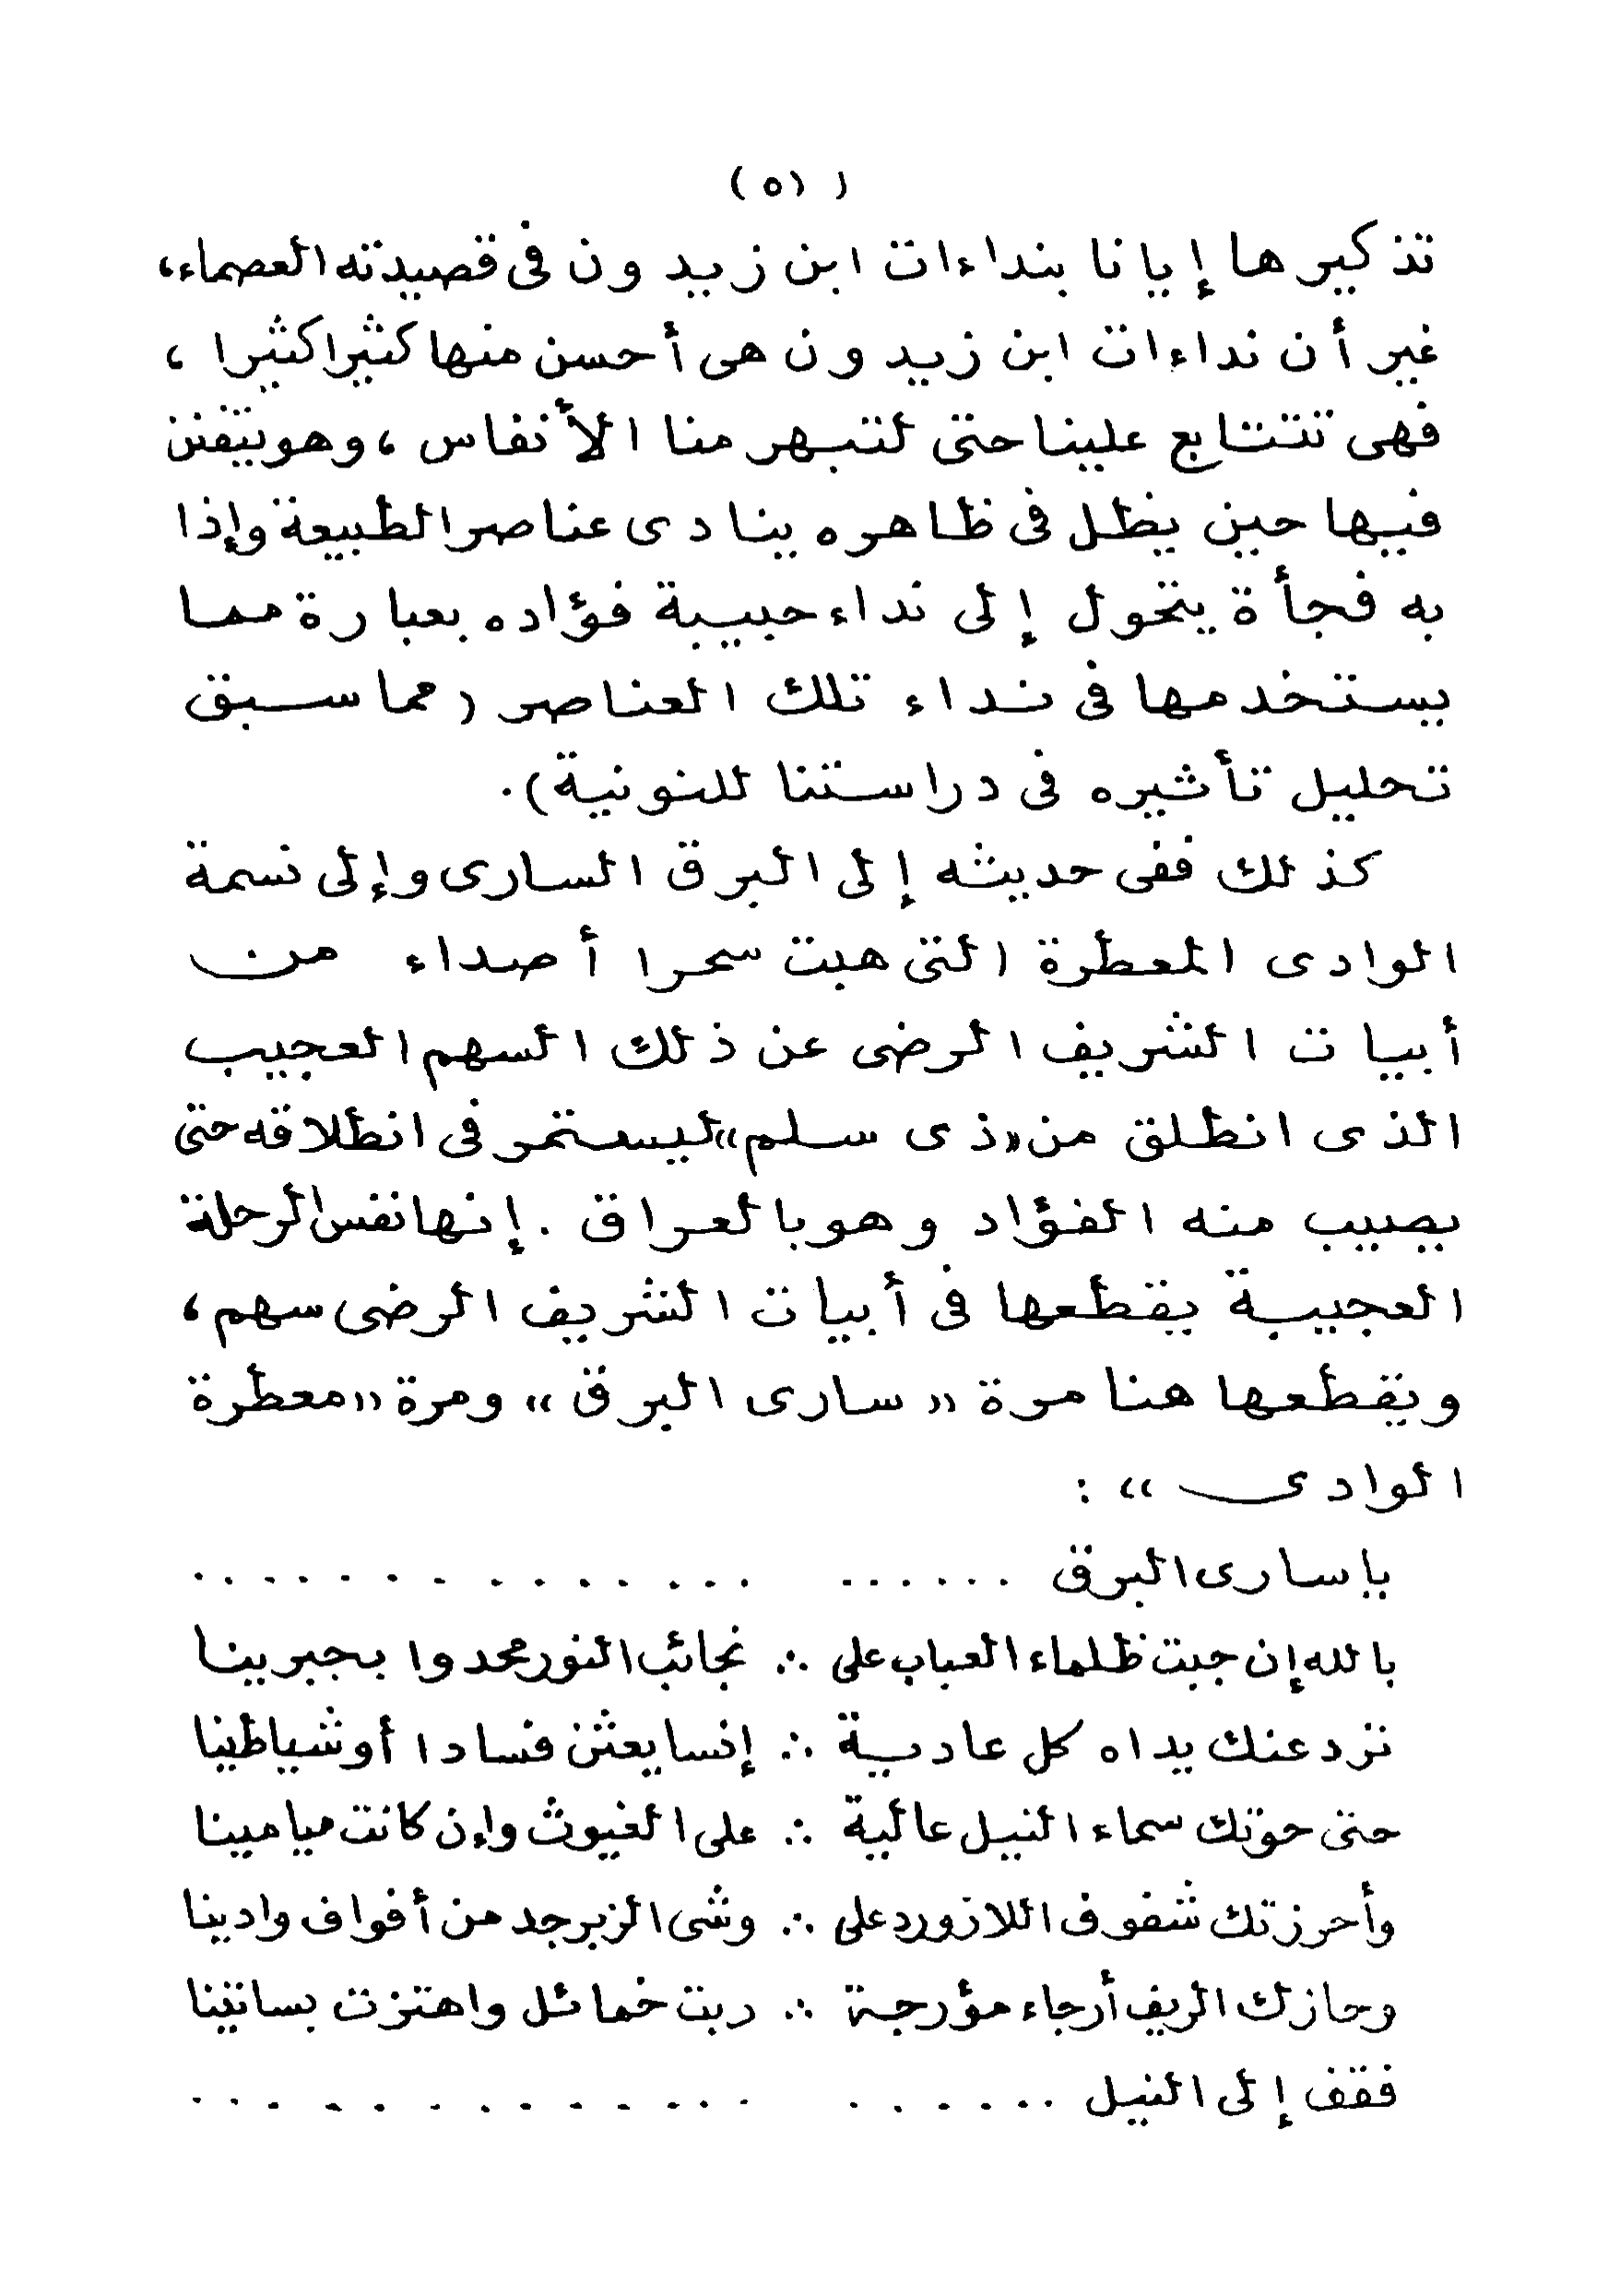 ( ٥١ )
تذكيرها إيانا بنداءات ابن زيدون فى قصيدته العصماء،
غير أن نداءات ابن زيدون هى أحسن منها كثيرا كثيرا ،
فهى تتتابع علينا حتى لتبهر منا الأنفاس ، وهو يتفنن
فيها حين يظل فى ظاهره ينادى عناصر الطبيعة وإذا
به فجأة يتحول إلى نداء حبيبة فؤاده بعبارة مما
يستخدمها فى نداء تلك العناصر ( مما سبق
تحليل تأثيره فى دراستنا للنونية ) .
كذلك ففى حديثه إلى البرق السارى وإلى نسمة
الوادى المعطرة التى هبت سحرا أصداء من
أبيات الشريف الرضى عن ذلك السهم العجيب
الذى انطلق من « ذى سلم » ليستمر فى انطلاقه حتى
يصيب منه الفؤاد وهو بالعراق . إنها نفس الرحلة
العجيبة يقطعها فى أبيات الشريف الرضى سهم ،
ويقطعها هنا مرة « سارى البرق » ومرة « معطرة
الوادى » :
يا سارى البرق ...... ..............
بالله إن جبت ظلماء العباب على ∴ نجائب النور محدوا بجبرينا
ترد عنك يداه كل عادية ∴ إنسا يعثن فسادا أو شياطينا
حتى حوتك سماء النيل عالية ∴ على الغيوث وإن كانت ميامينا
وأحرزتك شفوف اللازورد على ∴ وشى الزبرجد من أفواف وادينا
وحازك الريف أرجاء مؤرجة ∴ ربت خمائل واهتزت بساتينا
فقف إلى النيل ...... ..............